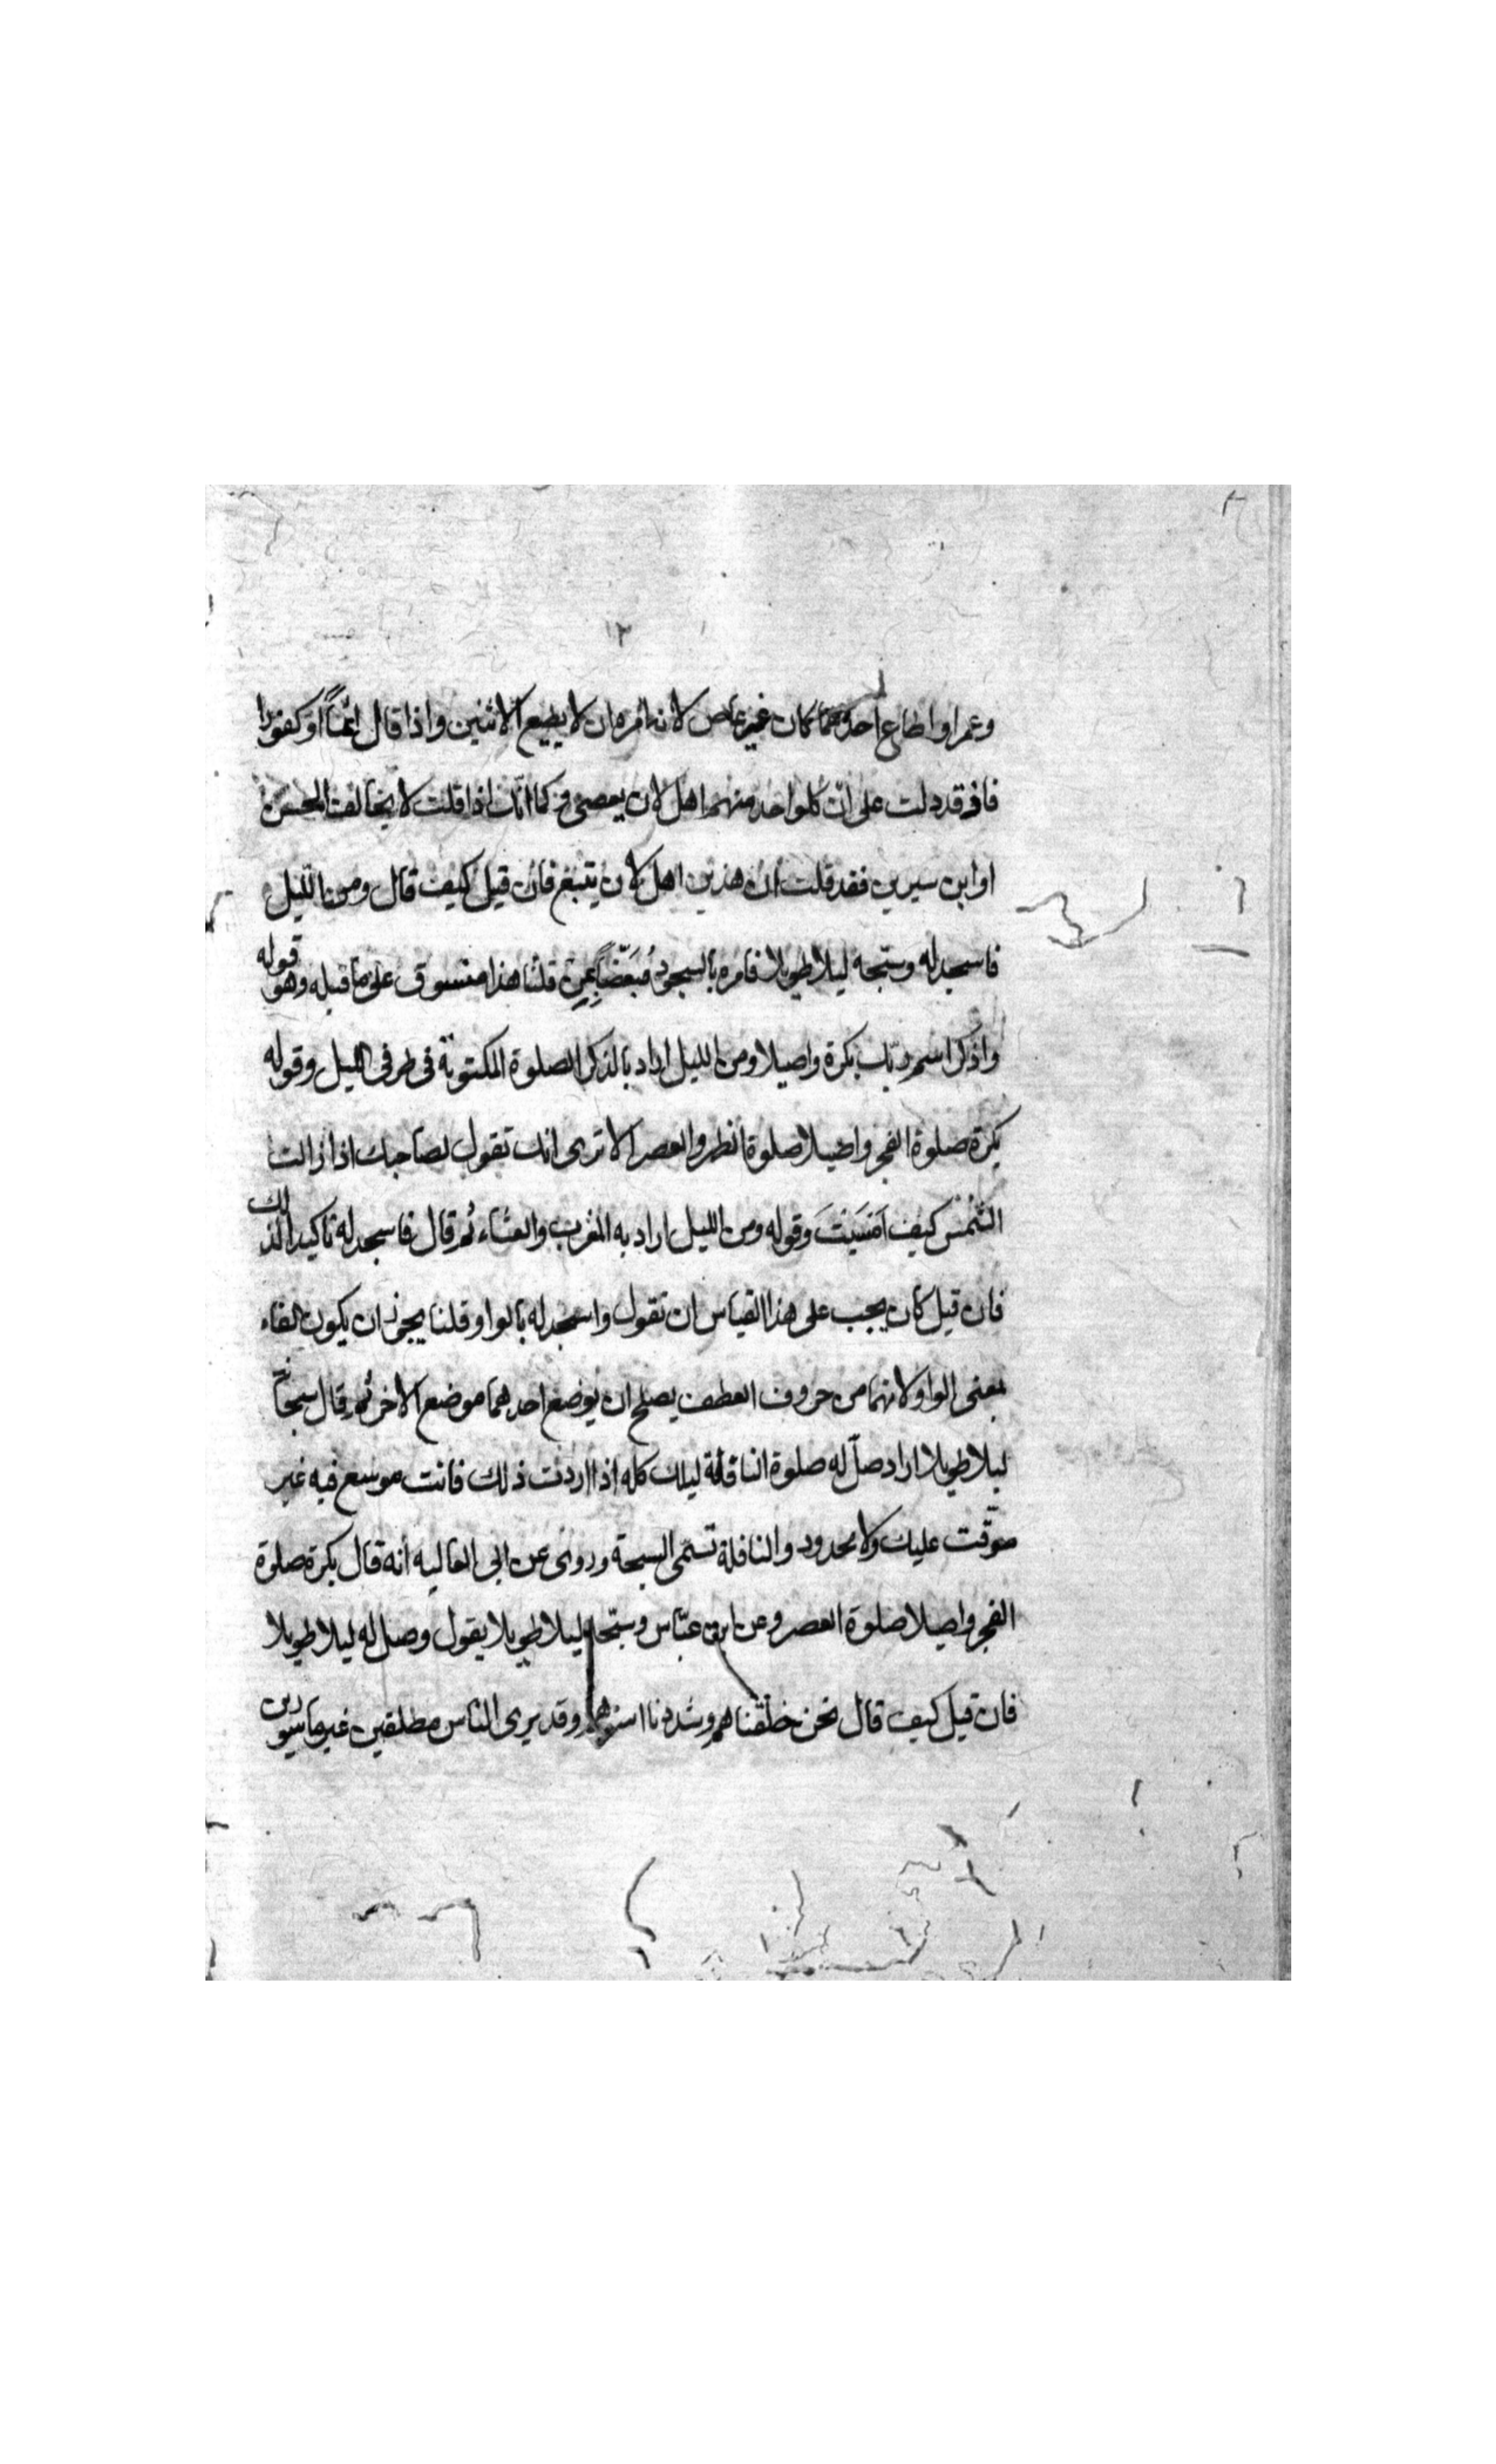 ١٢
وعمرا واطاع احدهما كان غير عاص لانه امره ان لا يطيع الاثنين واذا قال اثماً او كفورا
فاو قد دلت على انّ كلواحد منهما اهل لان يعصى كما انك اذا قلت لا يخالف الحسن
او ابن سيرين فقد قلت ان هذين اهل لان يتبع فان قيل كيف قال ومن اللّيل
فاسجد له وسبّحه ليلا طويلا فامره بالسجود مُبَعَّضاً بِمِن قلنا هذا منسوق على ما قبله وهو قوله
واذكر اسم ربك بكرة واصيلا ومن الليل اراد بالذكر الصلوة المكتوبة فى طرفى الليل وقوله
بكرة صلوة الفجر واصيلا صلوة الظهر والعصر الا ترى انك تقول لصاحبك اذا زالت
الشمس كيف اَمْسَيْتَ وقوله ومن الليل اراد به المغرب والعشاء ثم قال فاسجد له تاكيدا لذلك
فان قيل كان يجب على هذا القياس ان تقول واسجد له بالواو قلنا يجوز ان يكون الفاء
بمعنى الواو لانهما من حروف العطف يصلح ان يوضع احدهما موضع الاخر ثم قال سبحانه
ليلا طويلا اراد صلّ له صلوة النافلة ليلك كله اذا اردت ذلك فانت موسع فيه غير
موقّت عليك ولا محدود والنافلة تسمّى السبحة وروى عن ابى العاليه انه قال بكرة صلوة
الفجر واصيلا صلوة العصر وعن ابن عبّاس وسبّحه ليلا طويلا يقول وصل له ليلا طويلا
فان قيل كيف قال نحن خلقناهم وشددنا اسرهم وقد يرى الناس مطلقين غير ماسورين